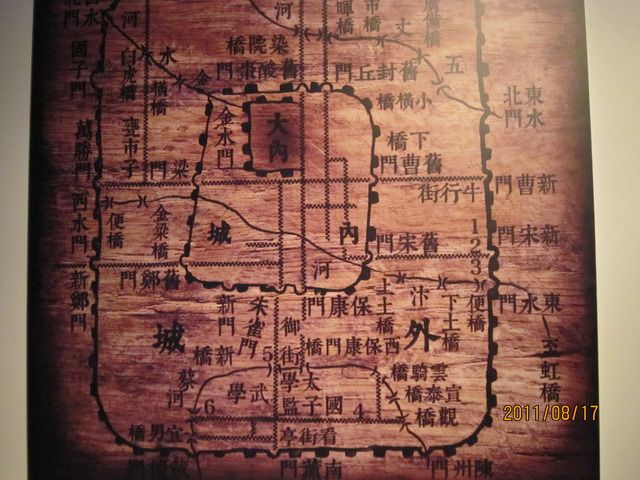 河
廣備橋
五丈
染院橋
舊酸棗門
舊封丘門
小橫橋
下橋
舊曹門
牛行街
新曹門
東水北門
固子門
白虎橋
水
金
橫橋
金水門
大內
萬勝門
甕市子
梁門
西水門
便橋
金梁橋
內城
舊宋門
新宋門
123
河
舊鄭門
新鄭門
汴
上土橋
下土橋
便橋
東水門
虹橋
新門
朱雀門
保康門
御街
保康門橋
西
外城
新橋
5
蔡河
武學
太學
國子監
4
6
1
雲騎橋
宣泰橋
觀橋
宜男橋
看街亭
南薰門
陳州門
2011/08/17